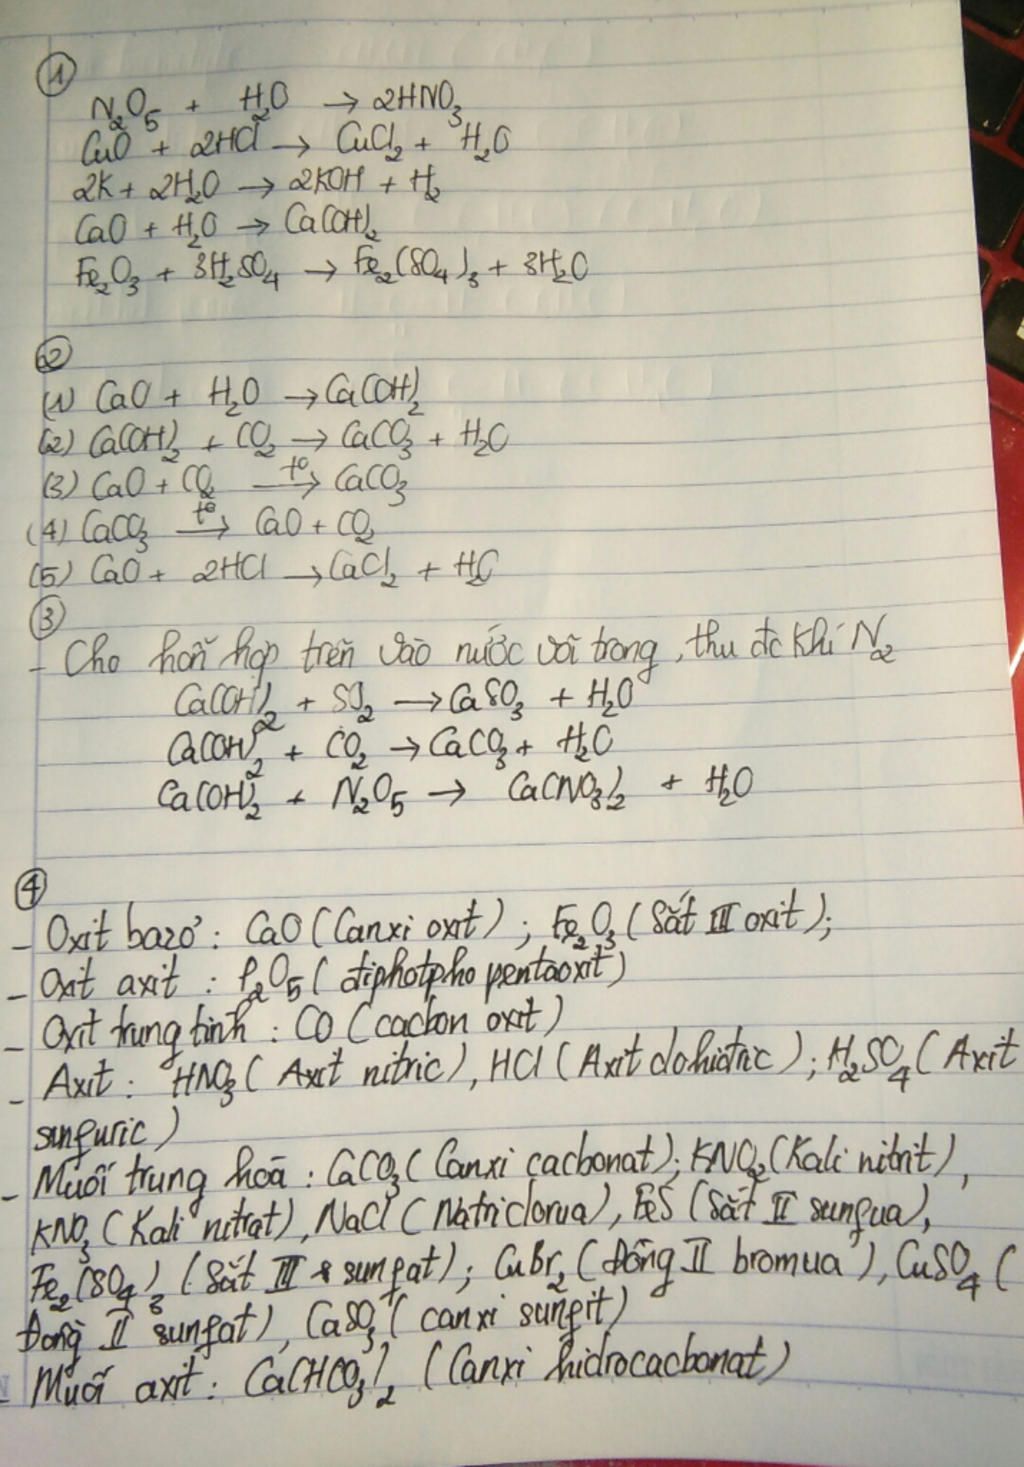 ①
N₂O₅ + H₂O → 2HNO₃
CuO + 2HCl → CuCl₂ + H₂O
2K + 2H₂O → 2KOH + H₂
CaO + H₂O → Ca(OH)₂
Fe₂O₃ + 3H₂SO₄ → Fe₂(SO₄)₃ + 3H₂O
②
(1) CaO + H₂O → Ca(OH)₂
(2) Ca(OH)₂ + CO₂ → CaCO₃ + H₂O
(3) CaO + CO₂ –t°→ CaCO₃
(4) CaCO₃ –t°→ CaO + CO₂
(5) CaO + 2HCl → CaCl₂ + H₂O
③
- Cho hỗn hợp trên vào nước vôi trong, thu đc khí N₂
Ca(OH)₂ + SO₂ → CaSO₃ + H₂O
Ca(OH)₂ + CO₂ → CaCO₃ + H₂O
Ca(OH)₂ + N₂O₅ → Ca(NO₃)₂ + H₂O
④
- Oxit bazơ : CaO (Canxi oxit) ; Fe₂O₃ (Sắt III oxit);
- Oxit axit : P₂O₅ (điphotpho pentaoxit)
- Oxit trung tính : CO (cacbon oxit)
- Axit : HNO₃ (Axit nitric), HCl (Axit clohiđric) ; H₂SO₄ (Axit
sunfuric)
- Muối trung hoà : CaCO₃ (Canxi cacbonat); KNO₂ (Kali nitrit),
KNO₃ (Kali nitrat), NaCl (Natri clorua), FeS (Sắt II sunfua),
Fe₂(SO₄)₃ (Sắt III sunfat); CuBr₂ (Đồng II bromua), CuSO₄ (
Đồng II sunfat), CaSO₃ (canxi sunfit)
- Muối axit : Ca(HCO₃)₂ (Canxi hidrocacbonat)